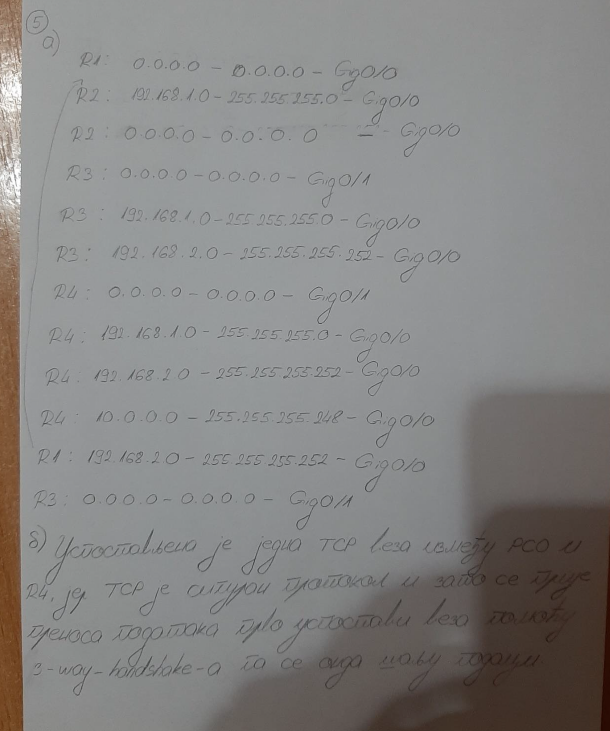 5
а)
R1: 0.0.0.0 - 0.0.0.0 - Gig0/0
R2: 192.168.1.0 - 255.255.255.0 - Gig0/0
R2: 0.0.0.0 - 0.0.0.0 - Gig0/0
R3: 0.0.0.0 - 0.0.0.0 - Gig0/1
R3: 192.168.1.0 - 255.255.255.0 - Gig0/0
R3: 192.168.2.0 - 255.255.255.252 - Gig0/0
R4: 0.0.0.0 - 0.0.0.0 - Gig0/1
R4: 192.168.1.0 - 255.255.255.0 - Gig0/0
R4: 192.168.2.0 - 255.255.255.252 - Gig0/0
R4: 10.0.0.0 - 255.255.255.248 - Gig0/0
R1: 192.168.2.0 - 255.255.255.252 - Gig0/0
R3: 0.0.0.0 - 0.0.0.0 - Gig0/1
б) Успостављена је једна TCP веза између PC0 и
R4, јер TCP је сигуран протокол и зато се прије
преноса података прво успостави веза помоћу
3-way-handshake-а па се онда шаљу подаци.